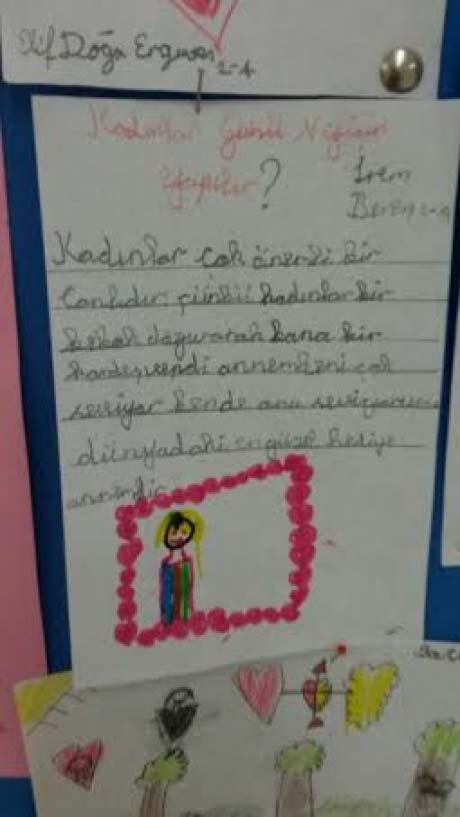 Elif Doğa Erguven
2-A
Kadınlar Günü Niçin
yapılır?
İrem
Beren 2-A
Kadınlar çok önemli bir
canlıdır çünkü kadınlar bir
bebek doğurarak bana bir
kardeş verdi annem beni çok
seviyor bende onu seviyorum
dünyadaki en güzel hediye
annemdir